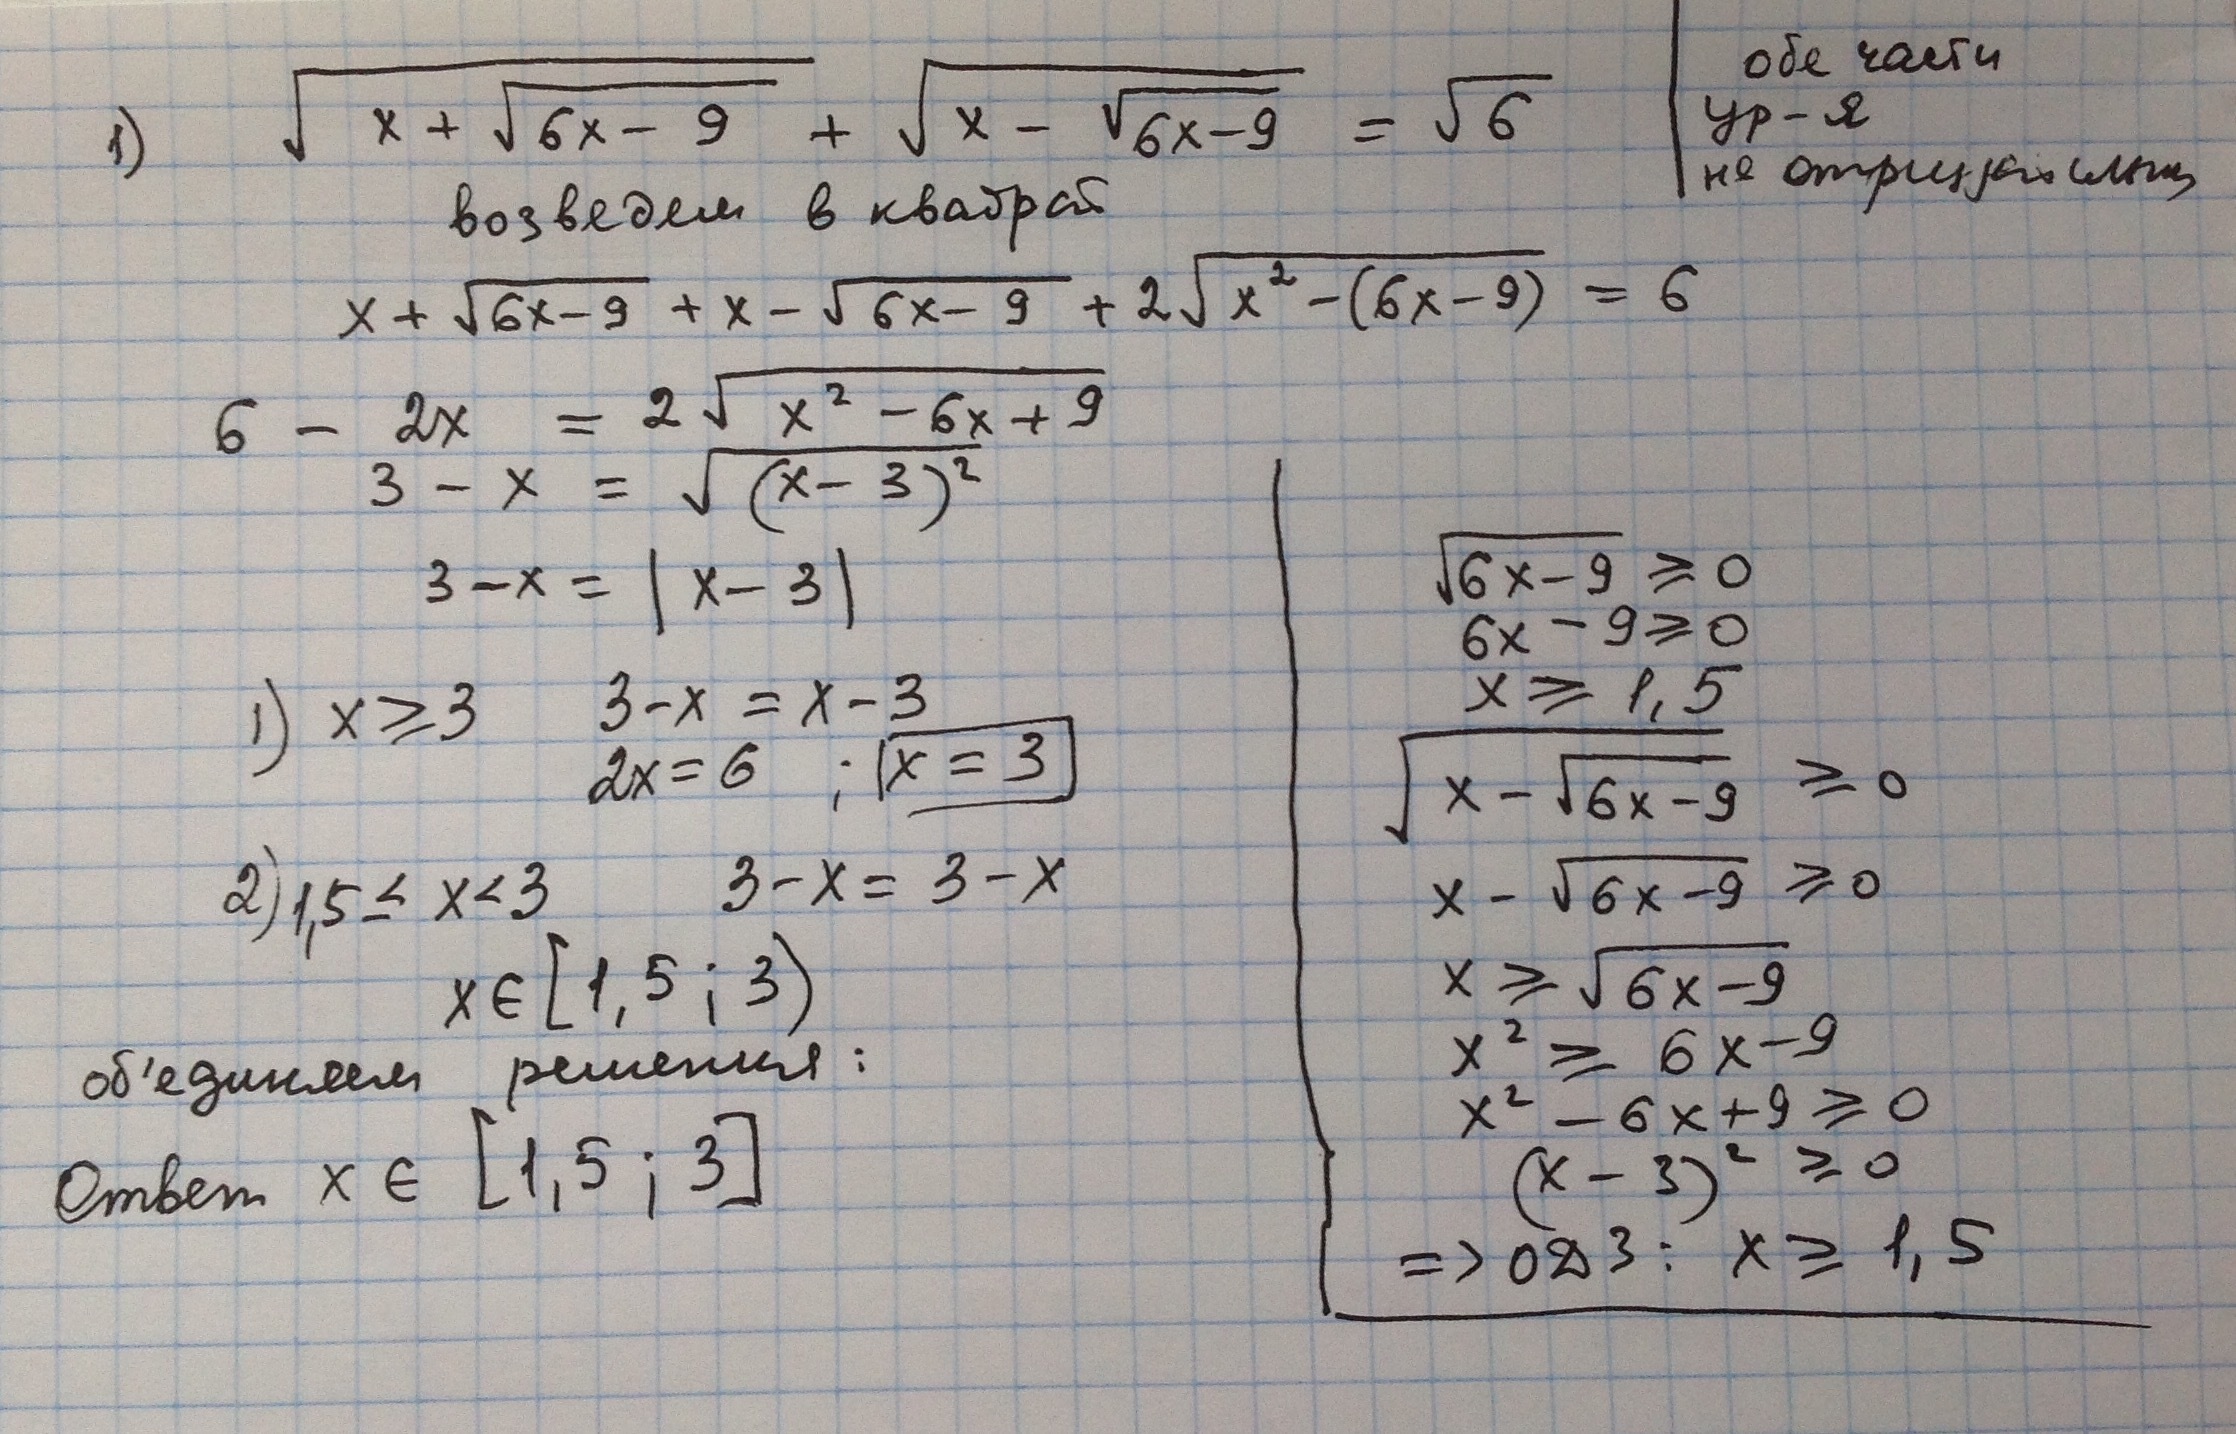 1) √(x + √(6x - 9)) + √(x - √(6x-9)) = √6
обе части
ур-я
не отрицательны
возведем в квадрат
x + √(6x-9) + x - √(6x-9) + 2√(x² - (6x-9)) = 6
6 - 2x = 2√(x² - 6x + 9)
3 - x = √((x - 3)²)
3 - x = |x - 3|
1) x ≥ 3 3-x = x-3
2x = 6 ; x = 3
2) 1,5 ≤ x < 3 3-x = 3-x
x ∈ [1,5 ; 3)
об'единяем решения:
Ответ x ∈ [1,5 ; 3]
√(6x-9) ≥ 0
6x - 9 ≥ 0
x ≥ 1,5
√(x - √(6x-9)) ≥ 0
x - √(6x-9) ≥ 0
x ≥ √(6x-9)
x² ≥ 6x-9
x² - 6x+9 ≥ 0
(x - 3)² ≥ 0
=> ОДЗ: x ≥ 1,5